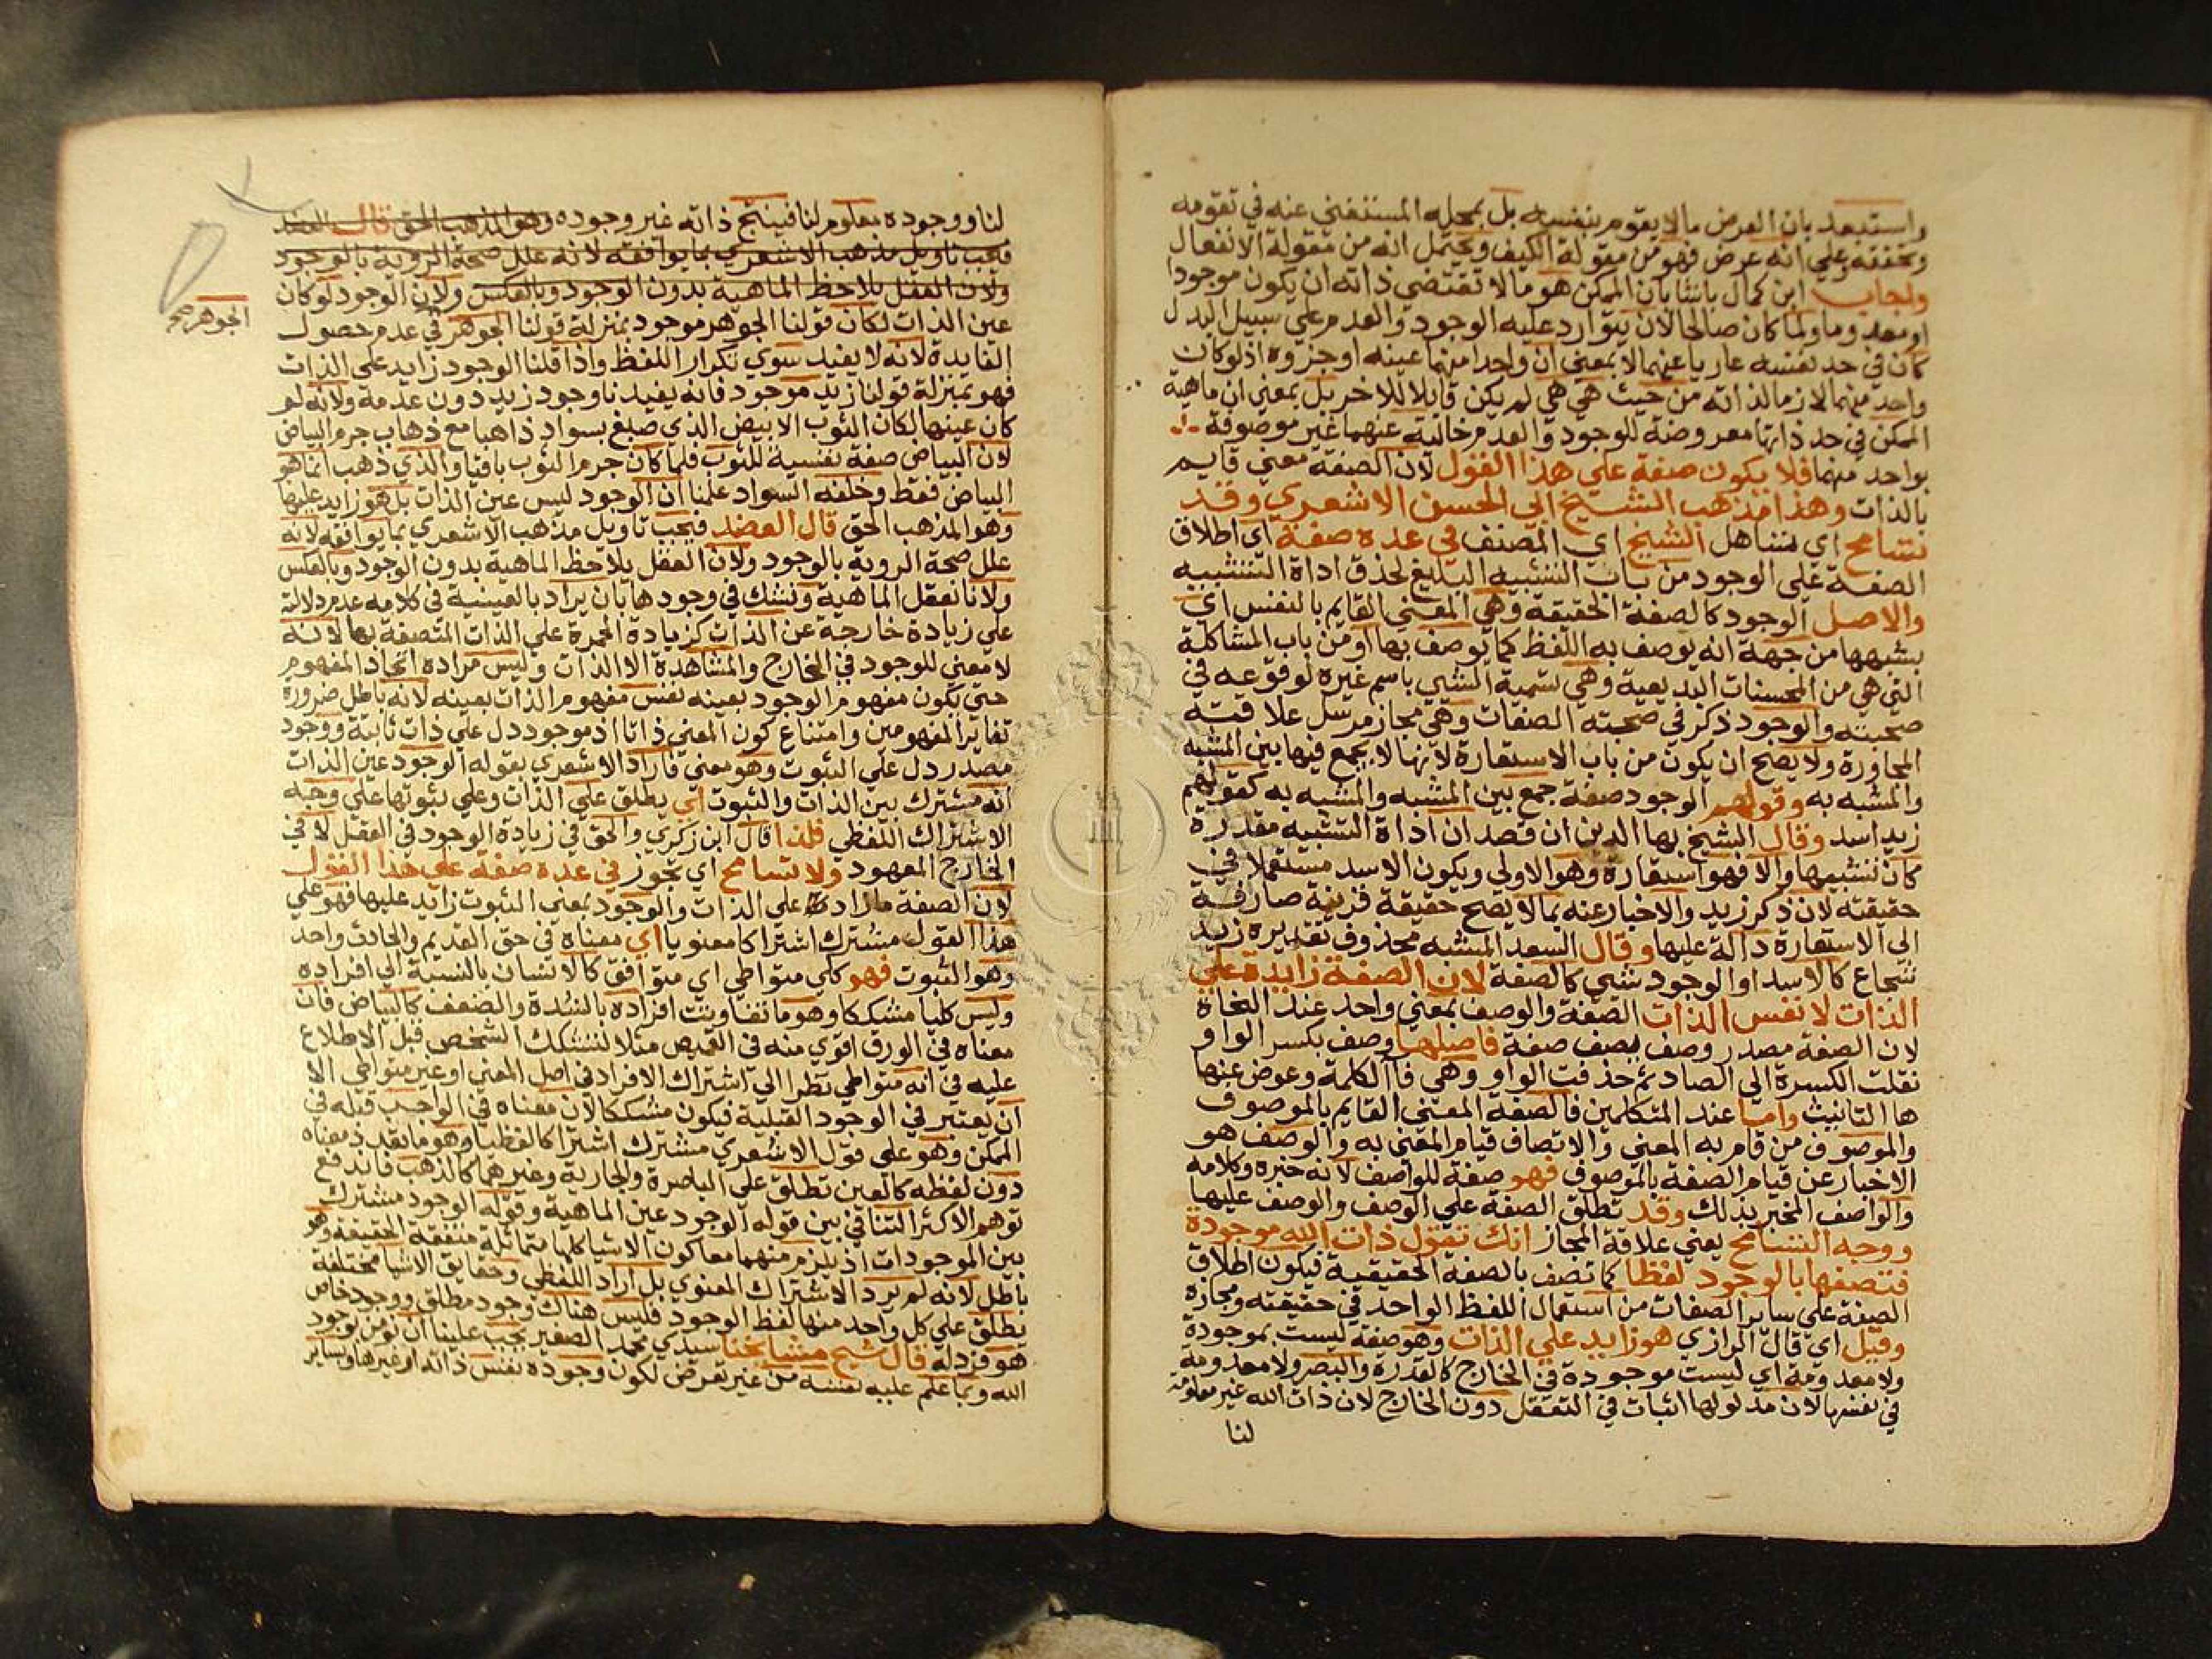 واستبعد بان العرض ما لا يقوم بنفسه بل بمحله المستغني عنه في تقومه
وتحققه وعلي انه عرض فهو من مقولة الكيف ويحتمل انه من مقولة الانفعال
واجاب ابن كمال باشا بان الممكن هو ما لا تقتضي ذاته ان يكون موجودا
او معدوما ولما كان صالحا لان يتوارد عليه الوجود والعدم علي سبيل البدل
كان في حد نفسه عاريا عنهما لا بمعني ان واحدا منهما عينه او جزوه اذ لو كان
واحد منهما لازما لذاته من حيث هي هي لم يكن قابلا للاخر بل بمعني ان ماهية
الممكن في حد ذاتها معروضة للوجود والعدم خالية عنهما غير موصوفة
بواحد منهما فلا يكون صفة علي هذا القول لان الصفة معني قايم
بالذات وهذا مذهب الشيخ ابي الحسن الاشعري وقد
تسامح اي تساهل الشيخ اي المصنف في عده صفة اي اطلاق
الصفة علي الوجود من باب التشبيه البليغ لحذف اداة التشبيه
والاصل الوجود كالصفة الحقيقة وهي المعني القايم بالنفس اي
يشبهها من جهة انه يوصف به اللفظ كما يوصف بها او من باب المشاكلة
التي هي من المحسنات البديعية وهي تسمية الشي باسم غيره لوقوعه في
صحبته والوجود ذكر في صحبته الصفات وهي مجاز مرسل علاقته
المجاورة ولا يصح ان يكون من باب الاستعارة لانها لا يجمع فيها بين المشبه
والمشبه به وقولهم الوجود صفة جمع بين المشبه والمشبه به كقولهم
زيد اسد وقال الشيخ بها الدين ان قصد ان اداة التشبيه مقدرة
كان تشبيها والا فهو استعارة وهو الاولي ويكون الاسد مستعملا في
حقيقته لان ذكر زيد والاخبار عنه بما لا يصح حقيقة قرينة صارفة
الي الاستعارة دالة عليها وقال السعد المشبه محذوف تقديره زيد
شجاع كالاسد او الوجود شي كالصفة لان الصفة زايدة علي
الذات لا نفس الذات الصفة والوصف بمعني واحد عند النحاة
لان الصفة مصدر وصف يصف صفة فاصلها وصف بكسر الواو
نقلت الكسرة الي الصاد ثم حذفت الواو وهي فا الكلمة وعوض عنها
ها التانيث واما عند المتكلمين فالصفة المعني القايم بالموصوف
والموصوف من قام به المعني والاتصاف قيام المعني به والوصف هو
الاخبار عن قيام الصفة بالموصوف فهو صفة للواصف لانه خبره وكلامه
والواصف المخبر بذلك وقد تطلق الصفة علي الوصف والوصف عليها
ووجه التسامح يعني علاقة المجاز انك تقول ذات الله موجودة
فتصفها بالوجود لفظا كما تصف بالصفة الحقيقية فيكون اطلاق
الصفة علي ساير الصفات من استعمال اللفظ الواحد في حقيقته ومجازه
وقيل اي قال الرازي هو زايد علي الذات وهو صفة ليست بموجودة
ولا معدومة اي ليست موجودة في الخارج كالقدرة والبصر ولا معدومة
في نفسها لان مدلولها اثبات في التعقل دون الخارج لان ذات الله غير معلومة
لنا
لنا ووجوده معلوم لنا فينتج ذاته غير وجوده وهو المذهب الحق قال العضد
فيجب تاويل مذهب الاشعري بما يوافقه لانه علل صحة الروية بالوجود
ولان العقل يلاحظ الماهية بدون الوجود وبالعكس ولان الوجود لو كان
عين الذات لكان قولنا الجوهر موجود بمنزلة قولنا الجوهر في عدم حصول
الجوهر صح
الفايدة لانه لا يفيد سوي تكرار اللفظ واذا قلنا الوجود زايد علي الذات
فهو بمنزلة قولنا زيد موجود فانه يفيدنا وجود زيد دون عدمه ولانه لو
كان عينها لكان الثوب الابيض الذي صبغ بسواد ذاهبا مع ذهاب جرم البياض
لان البياض صفة نفسية للثوب فلما كان جرم الثوب باقيا والذي ذهب انما هو
البياض فقط وخلفه السواد علمنا ان الوجود ليس عين الذات بل هو زايد عليها
وهو المذهب الحق قال العضد فيجب تاويل مذهب الاشعري بما يوافقه لانه
علل صحة الروية بالوجود ولان العقل يلاحظ الماهية بدون الوجود وبالعكس
ولانا نعقل الماهية ونشك في وجودها بان يراد بالعينية في كلامه عدم دلالته
علي زيادة خارجة عن الذات كزيادة الحمرة علي الذات المتصفة بها لانه
لا معني للوجود في الخارج والمشاهدة الا الذات وليس مراده اتحاد المفهوم
حتي يكون مفهوم الوجود بعينه نفس مفهوم الذات بعينه لانه باطل ضرورة
تغاير المفهومين وامتناع كون المعني ذاتا اذ موجود دل علي ذات ثابتة ووجود
مصدر دل علي الثبوت وهو معني فاراد الاشعري بقوله الوجود عين الذات
انه مشترك بين الذات والثبوت اي يطلق علي الذات وعلي ثبوتها علي وجه
الاشتراك اللفظي فلذا قال ابن زكري والحق في زيادة الوجود في العقل لا في
الخارج المعهود ولا تسامح اي تجوز في عده صفة علي هذا القول
لان الصفة ما زاد علي الذات والوجود بمعني الثبوت زايد عليها فهو علي
هذا القول مشترك اشتراكا معنويا اي معناه في حق القديم والحادث واحد
وهو الثبوت فهو كلي متواطي اي متوافق كالانسان بالنسبة الي افراده
وليس كليا مشككا وهو ما تفاوتت افراده بالشدة والضعف كالبياض فان
معناه في الورق اقوي منه في القميص مثلا لتشكك الشخص قبل الاطلاع
عليه في انه متواطي نظرا الي اشتراك الافراد في اصل المعني او غير متواطي الا
ان يعتبر في الوجود القبلية فيكون مشككا لان معناه في الواجب قبله في
الممكن وهو علي قول الاشعري مشترك اشتراكا لفظيا وهو ما تعدد معناه
دون لفظه كالعين تطلق علي الباصرة والجارية وغيرهما كالذهب فاندفع
توهم الاكثر التنافي بين قوله الوجود عين الماهية وقوله الوجود مشترك
بين الموجودات اذ يلزم منهما معا كون الاشيا كلها متماثلة متفقة الحقيقة وهو
باطل لانه لم يرد الاشتراك المعنوي بل اراد اللفظي وحقايق الاشيا مختلفة
يطلق علي كل واحد منها لفظ الوجود فليس هناك وجود مطلق ووجود خاص
هو فرد له قال شيخ مشايخنا سيدي محمد الصغير يجب علينا ان نومن بوجود
الله وبما علم عليه نفسه من غير تعرض لكون وجوده نفس ذاته او غيرها وساير